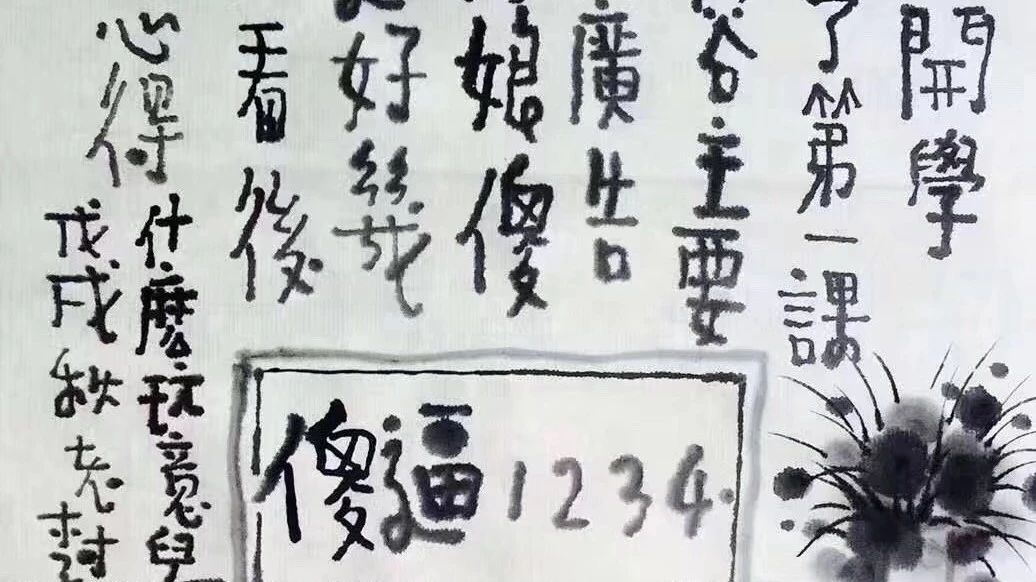 開學
了第一課
容主要
廣告
娘傻
好幾
看後
心得
什麼玩意兒
戊戌秋老樹
傻逼1234